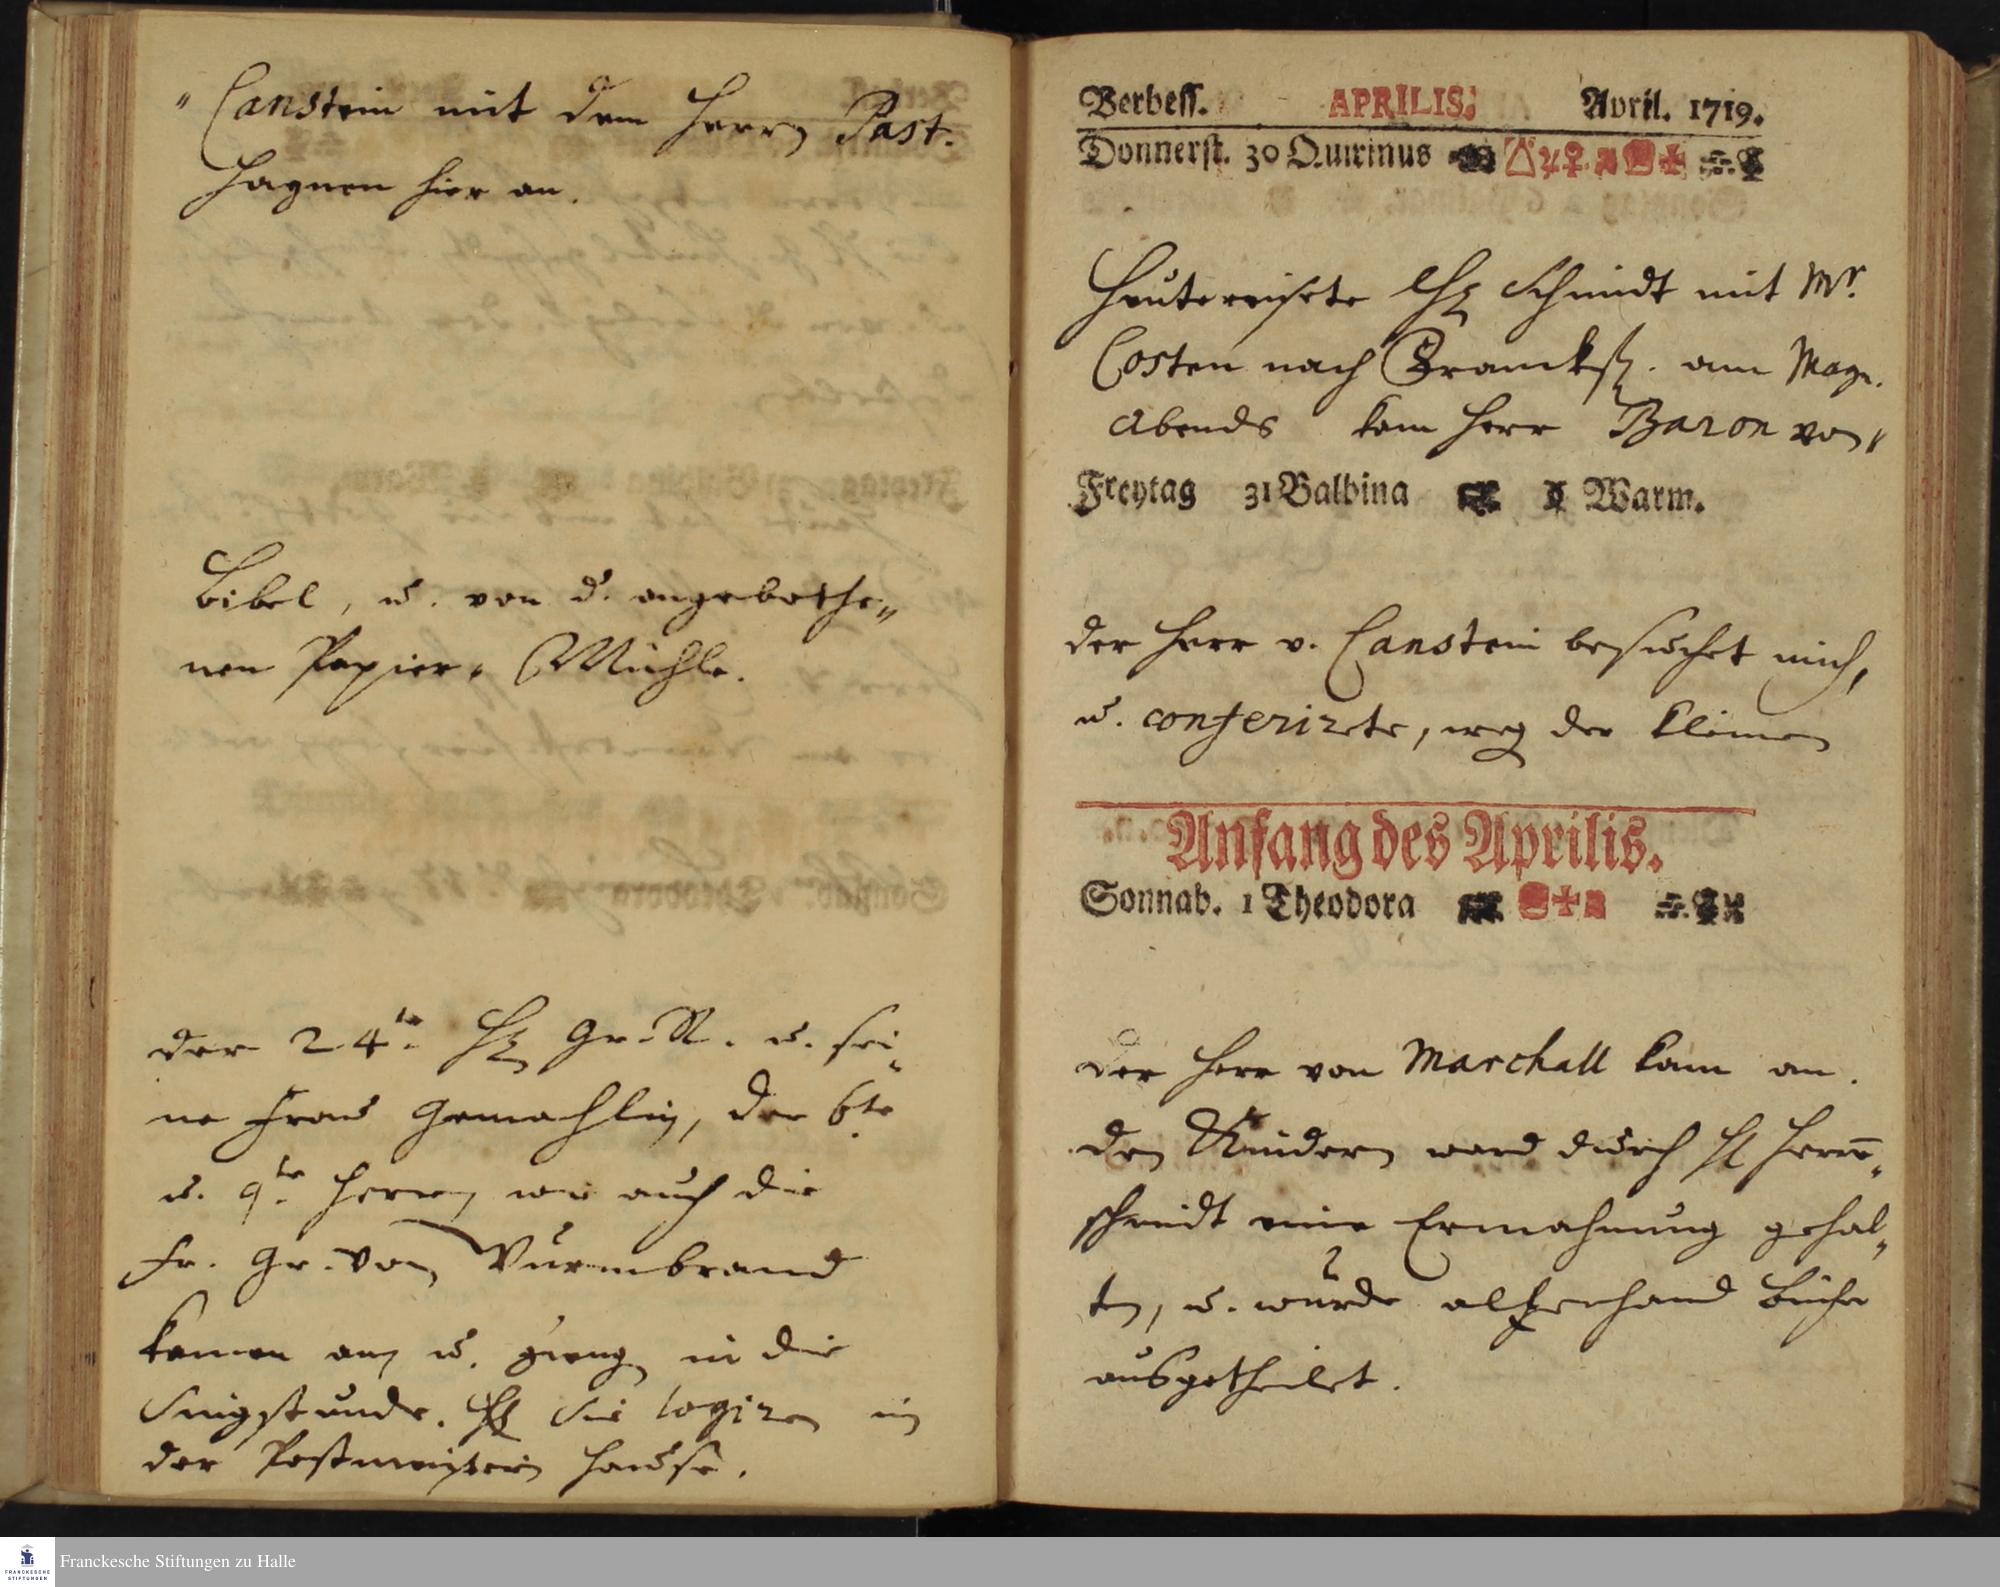 " Canstein mit dem Herrn Past.
Hagnen hier an.
Bibel, u. von d. angebothe„
nen Papier-Mühle.
der 24te H. Gr. R. u. sei„
ne Frau Gemahlin, der 6te
u. 9te Herrn wie auch die
Fr. Gr. von Wurmbrand
kamen an u. gieng in die
Singstunde. Sie logiren in
der Postmeisterin Hause.
Verbess. APRILIS. April. 1719.
Donnerst. 30 Quirinus
Heute reisete H. Schmidt mit Mr.
Costen nach am Magn.
Abends kam Herr Baron von„
Freytag 31 Balbina Warm.
der Herr v. Canstein besuchet mich,
u. conferirete, weg der kleinen
Anfang des Aprilis.
Sonnab. 1 Theodora
der Herr von Marchall kam an.
den Kindern ward durch H Herrn„
schmidt eine Ermahnung gehal„
ten, u. wurde allerhand Bücher
ausgetheilet.
Franckesche Stiftungen zu Halle
FRANCKESCHE
STIFTUNGEN